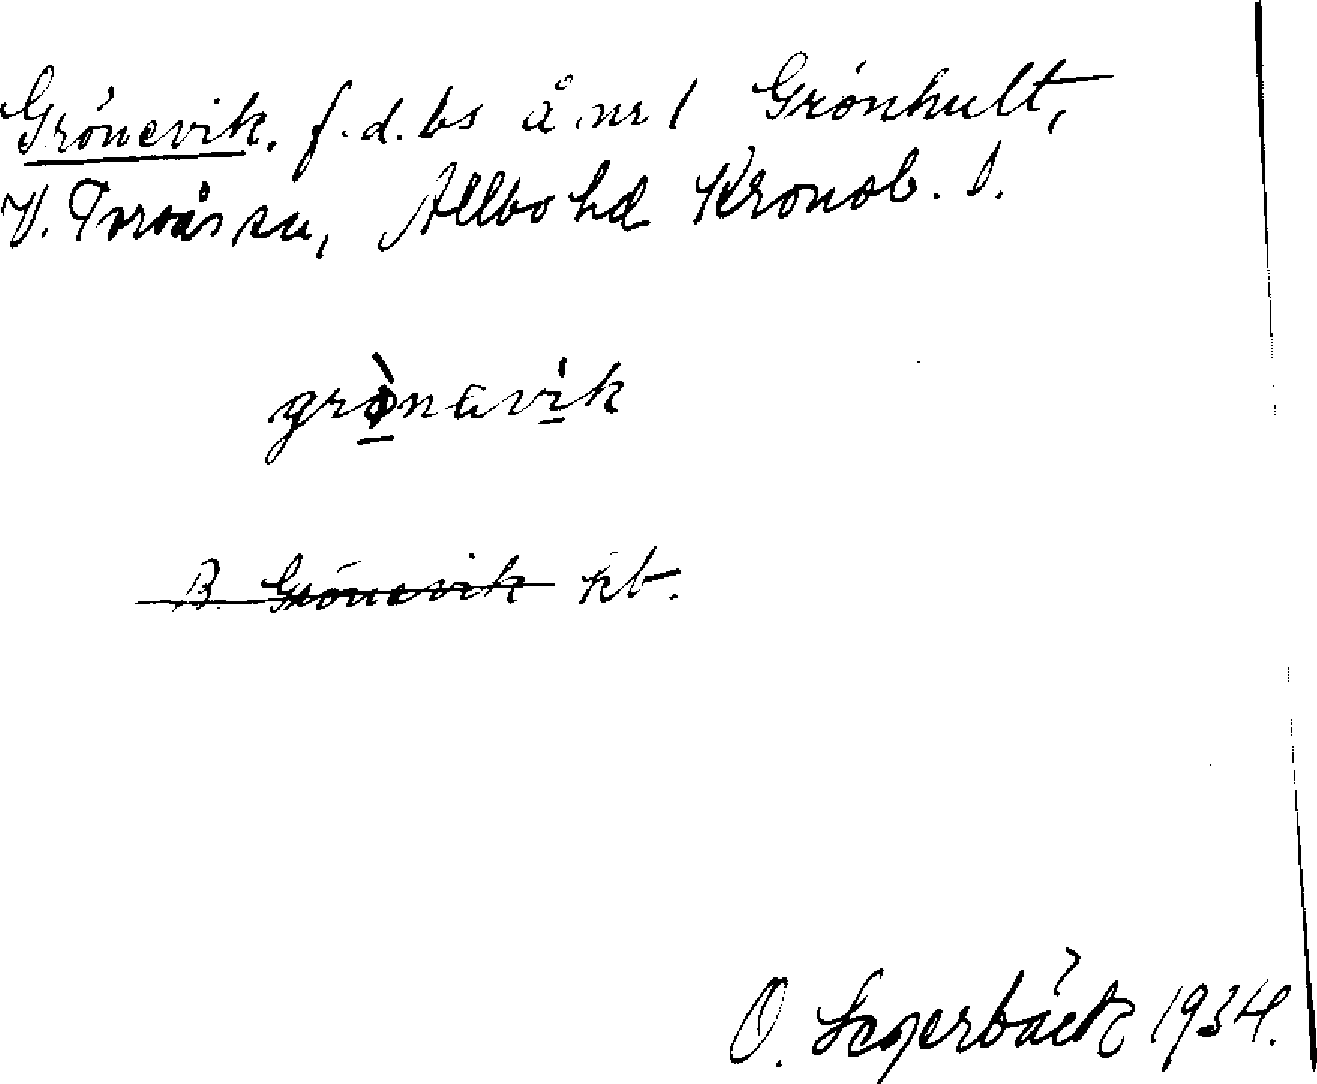 Grönevik. f.d. bs å nr 1 Grönhult,
V. Torsås sn, Allbo hd Kronob. l.
grònavik
B. Grönevik kt.
O. Lagerbäck 1934.